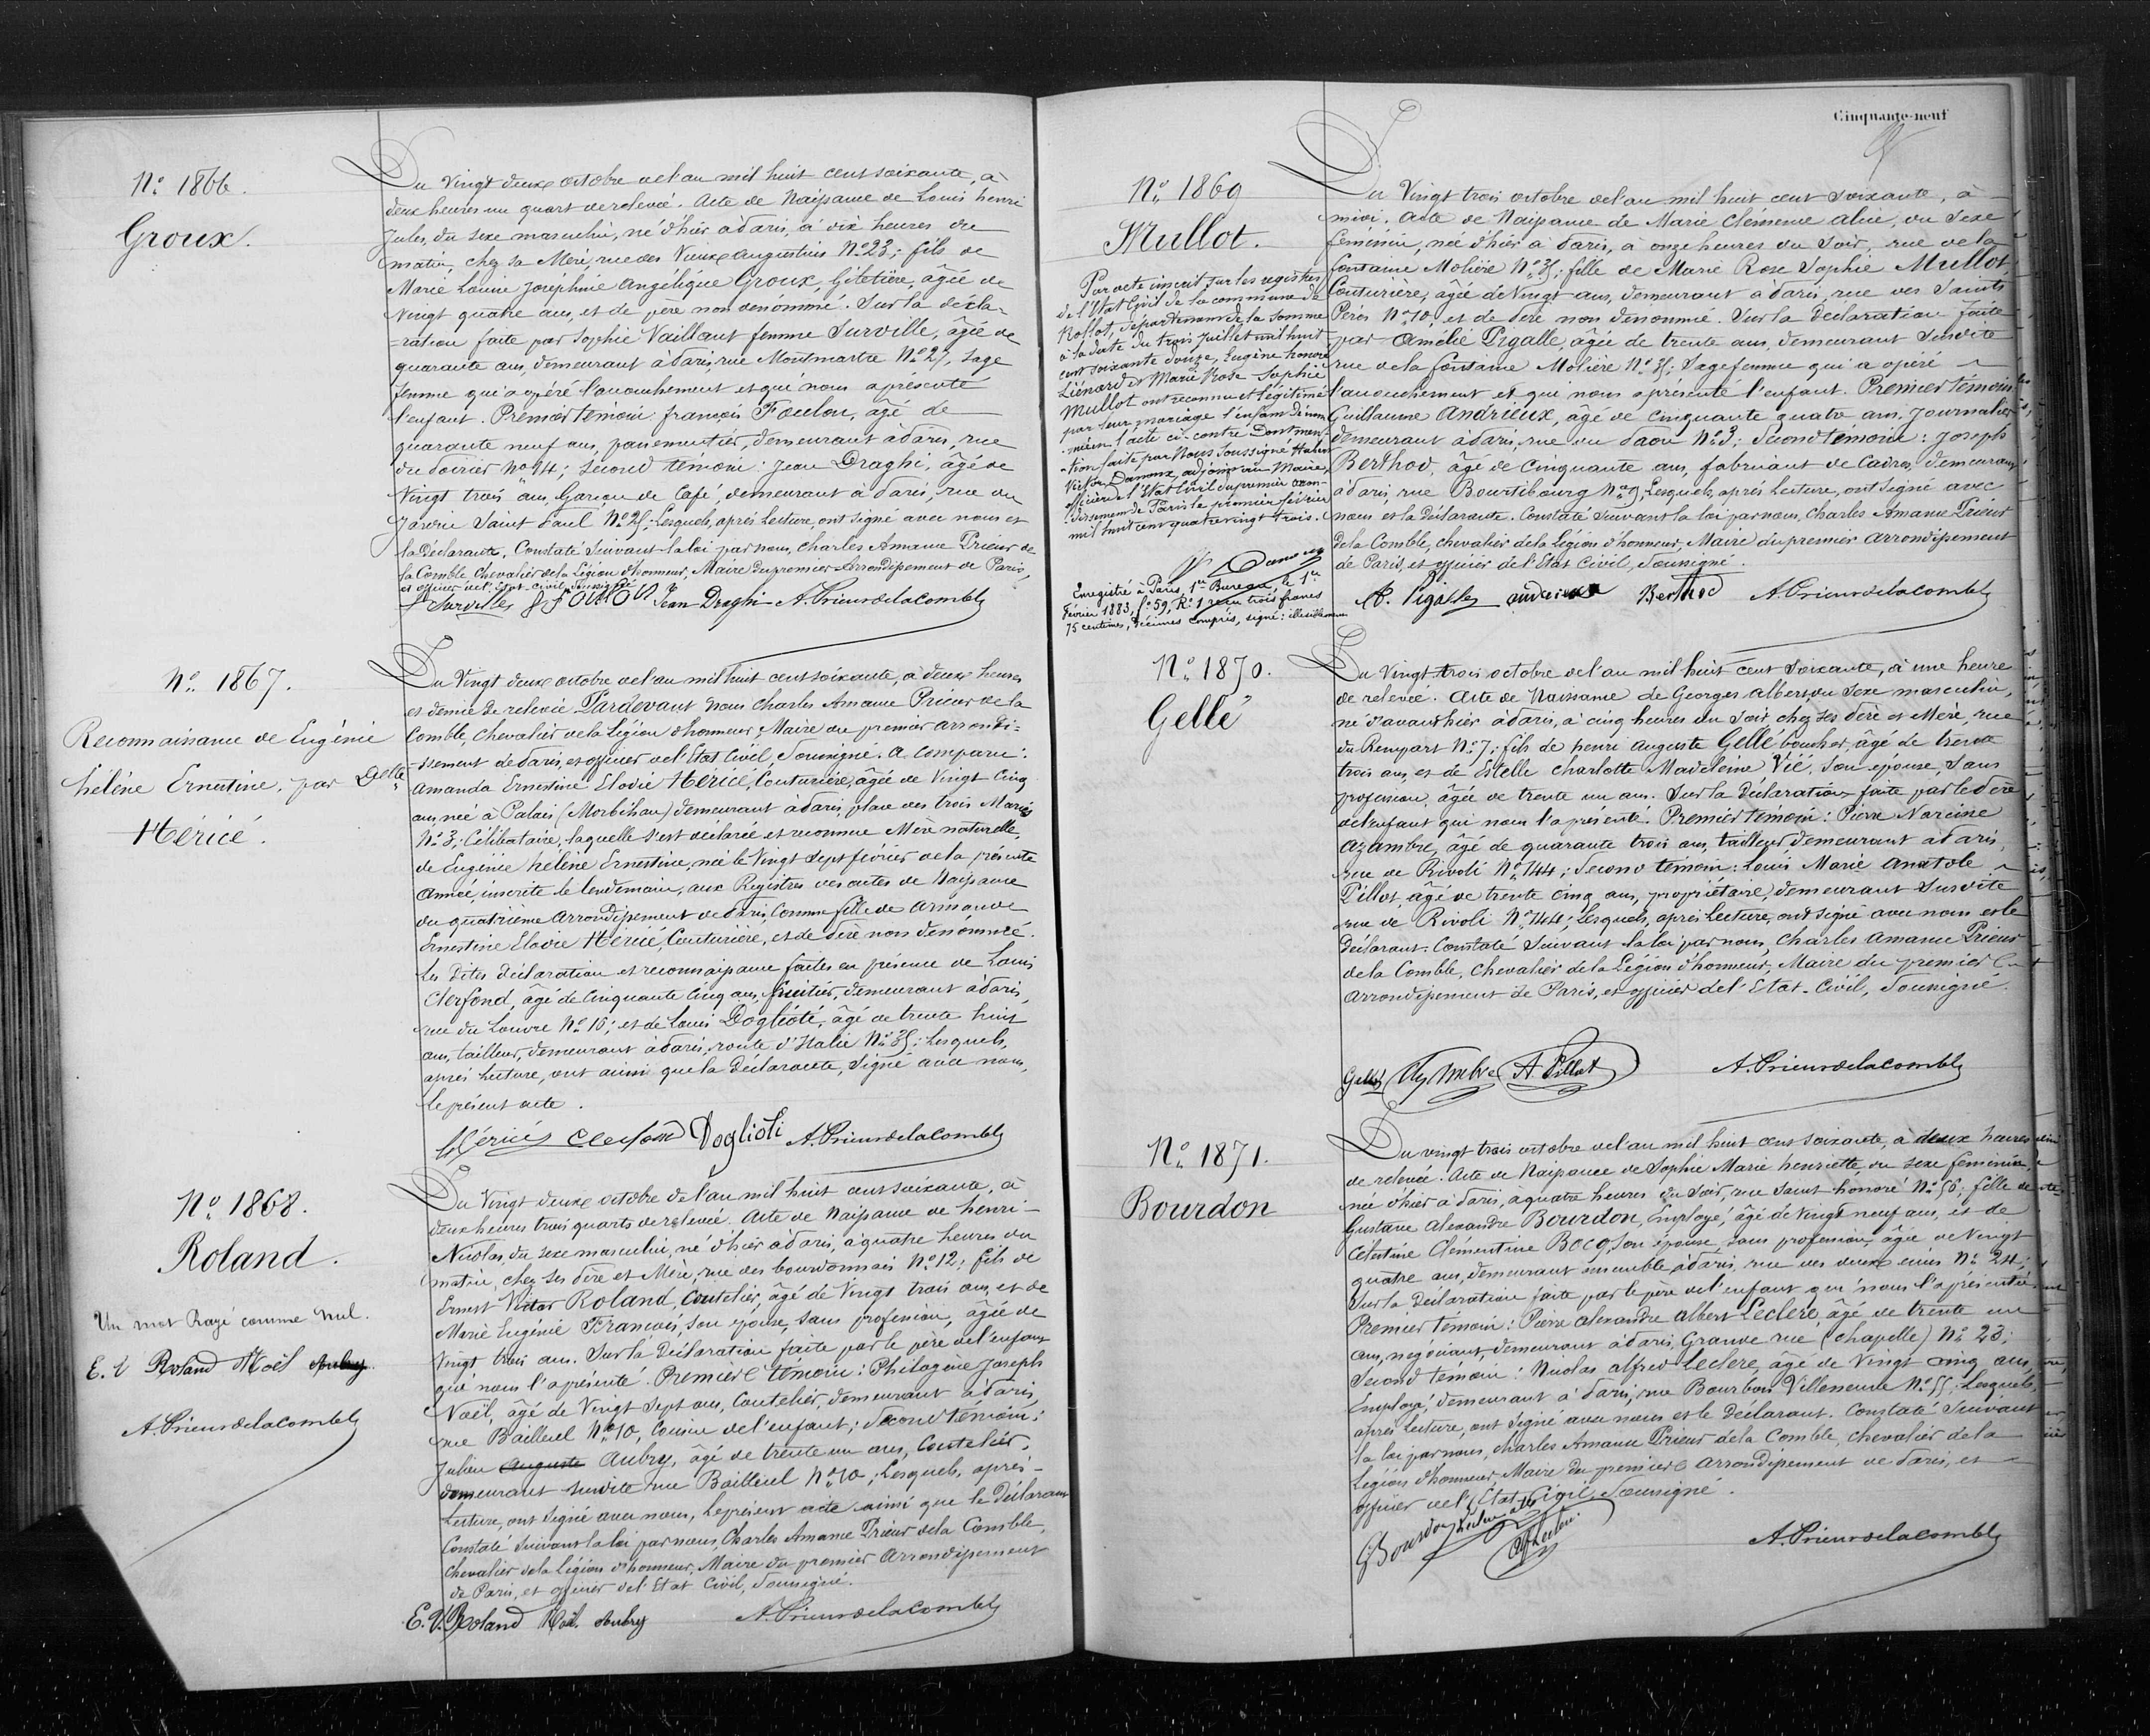 Nº 1866.
Groux.
Du Vingt deux octobre de l'an mil huit cent soixante, à
deux heures un quart de relevée. Acte de Naissance de Louis henri
Jules, du sexe masculin, né d'hier à Paris, à dix heures du
matin, chez sa Mère, rue des Vieux augustins Nº 23; fils de
Marie Louise Joséphine Angélique Groux, Giletière, âgée de
Vingt quatre ans, et de père non dénommé. Sur la décla-
=ration faite par Sophie Vaillant femme Surville, âgée de
quarante ans, demeurant à Paris, rue Montmartre Nº 27, Sage
femme qui a opéré l'accouchement et qui nous a présenté
l'enfant. Premier témoin françois Foulon, âgé de
quarante neuf ans, passementier, demeurant à Paris, rue
du Poirier Nº 14; Second témoin: Jean Draghi, âgé de
Vingt trois ans, Garçon de Café, demeurant à Paris, rue du
Jardin Saint Paul Nº 25. Lesquels, après Lecture, ont signé avec nous et
la Déclarante, Constaté suivant la loi par nous, Charles Amance Prieur de
la Comble, Chevalier de la Légion d'honneur, Maire du premier Arrondissement de Paris,
et officier de l'Etat-civil, soussigné
Fe Surville F Foulon Jean Draghi A. Prieur de la Comble
Nº 1867.
Reconnaissance de Eugénie
hélène Ernestine, par Delle
Héricé.
Du Vingt deux octobre de l'an mil huit cent soixante, à deux heures
et demie de relevée Pardevant nous Charles Amance Prieur de la
Comble, Chevalier de la Légion d'honneur, Maire du premier arrondi-
=ssement de Paris, et officier de l'Etat Civil, Soussigné. a Comparu:
amanda Ernestine Elodie Héricé, Couturière, âgée de Vingt Cinq
ans, née à Palais (Morbihan) demeurant à Paris, place des trois Maries
Nº 3; Célibataire, laquelle s'est déclarée et reconnue Mère naturelle,
de Eugénie hélène Ernestine, née le Vingt sept février de la présente
Année, inscrite le lendemain, aux Registres des actes de Naissance
du quatrième Arrondissement de Paris, Comme fille de Armande
Ernestine Elodie Héricé Couturière, et de Père non dénommé.
Les Dites Déclaration et reconnaissance faites en présence de Louis
Clerfond, âgé de Cinquante Cinq ans, fruitier, demeurant à Paris,
rue du Louvre Nº 16; et de Louis Doglioti, âgé de trente huit
ans, tailleur, demeurant à Paris, route d'Italie Nº 35; Lesquels,
après Lecture, ont ainsi que la Déclarante, Signé avec nous,
le présent acte.
Héricé Clerfond Doglioti A. Prieur de la Comble
Nº 1868.
Roland.
Un mot Rayé comme nul.
E. V Roland Noël Aubry
A. Prieur de la Comble
Du Vingt deux octobre de l'an mil huit cent soixante, à
deux heures trois quarts de relevée. Acte de Naissance de henri-
Nicolas, du sexe masculin, né d'hier à Paris, à quatre heures du
matin, chez ses Père et Mère, rue des bourdonnais Nº 12; fils de
Ernest Victor Roland, Coutelier, âgé de Vingt trois ans, et de
Marie Eugénie François, son épouse, sans profession, âgée de
Vingt trois ans. Sur la Déclaration faite par le père de l'enfant
qui nous l'a présenté. Premier témoin: Philogène Joseph
Noël, âgé de Vingt sept ans, Coutelier, demeurant à Paris,
rue Bailleul Nº 10, Cousin de l'enfant; Second témoin:
Julien Auguste Aubry, âgé de trente un ans, Coutelier,
demeurant susdite rue Bailleul Nº 10; Lesquels, après-
Lecture, ont signé avec nous, le présent acte ainsi que le Déclarant
Constaté suivant la loi par nous, Charles Amance Prieur de la Comble,
chevalier de la Légion d'honneur, Maire du premier Arrondissement
de Paris, et officier de l'Etat Civil, Soussigné.
E. V. Roland Noël. Aubry A. Prieur de la Comble
Cinquante-neuf
Nº 1869
Mullot.
Par acte inscrit sur les registres
de l'Etat Civil de la commune de
Rollot, département de la Somme
à la date du trois Juillet mil huit
cent soixante douze, Eugène honoré
Liénard et Marie Rose Sophie
Mullot ont reconnu et légitimé
par leur mariage l'enfant dénom-
mée en l'acte ci-contre Dont men-
-tion faite par Nous Soussigné
Victor Damour, adjoint au Maire,
officier de l'Etat Civil du premier arron-
-dissement de Paris le premier février
mil huit cent quatre vingt trois.
Enregistré à Paris, 1er Bureau, le 1er
février 1883, fº 59, Rº 1 reçu trois francs
75 centimes, décimes compris, signé: illisiblement
Du Vingt trois octobre de l'an mil huit cent soixante, à
midi. Acte de Naissance de Marie Clémence alice, du Sexe
féminin, née d'hier à Paris, à onze heures du Soir, rue de la
fontaine Molière Nº 35; fille de Marie Rose Sophie Mullot,
Couturière, âgée de Vingt ans, demeurant à Paris, rue des Saints
Pères Nº 10, et de Père non dénommé. Sur la Déclaration faite
par Amélie Pigalle, âgée de trente ans, demeurant Susdite
rue de la fontaine Molière Nº 35; Sagefemme qui a opéré
l'accouchement et qui nous a présenté l'enfant. Premier témoin
Guillaume Andrieux, âgé de cinquante quatre ans, Journalier
demeurant à Paris, rue du Nº 3; Second témoin: Joseph
Berthod, âgé de Cinquante ans, fabricant de Cadres, demeurant
à Paris, rue Bourtibourg Nº 9, Lesquels, après Lecture, ont signé avec
nous et la Déclarante. Constaté suivant la loi par nous, Charles Amance Prieur
de la Comble, chevalier de la Légion d'honneur, Maire du premier arrondissement
de Paris, et officier de l'Etat Civil, Soussigné.
A. Pigalle andrieux Berthod A. Prieur de la Comble
Nº 1870.
Gellé
Du Vingt-trois octobre de l'an mil huit cent soixante, à une heure
de relevée. Acte de Naissance de Georges Albert, du Sexe masculin,
né d'avanthier à Paris, à cinq heures du Soir, chez ses Père et Mère, rue
du Rempart Nº 7; fils de henri Auguste Gellé boucher, âgé de trente
trois ans, et de Estelle Charlotte Madeleine Vié, Son épouse, Sans
profession, âgée de trente un ans. Sur la Déclaration faite par le Père
de l'enfant qui nous l'a présenté. Premier témoin: Pierre Narcisse
Azambre, âgé de quarante trois ans, tailleur, demeurant à Paris,
rue de Rivoli Nº 144; Second témoin: Louis Marie Anatole
Pillot, âgé de trente cinq ans, propriétaire, demeurant Susdite
rue de Rivoli Nº 144; Lesquels, après Lecture, ont signé avec nous et le
Déclarant. Constaté Suivant la loi par nous, Charles Amance Prieur
de la Comble, Chevalier de la Légion d'honneur, Maire du premier
arrondissement de Paris, et officier de l'Etat-Civil, Soussigné.
Gellé Azambre A. Pillot A. Prieur de la Comble
Nº 1871.
Bourdon
Du vingt trois octobre de l'an mil huit cent soixante, à deux heures
de relevée. Acte de Naissance de Sophie Marie henriette, du sexe féminin,
née d'hier à Paris, à quatre heures du Soir, rue Saint honoré Nº 56; fille de
Gustave Alexandre Bourdon, Employé, âgé de Vingt neuf ans, et de
Célestine Clémentine Bocq, Son épouse, sans profession, âgée de Vingt
quatre ans, demeurant ensemble à Paris, rue des deux écus Nº 24;
Sur la Déclaration faite par le père de l'enfant qui nous l'a présenté
Premier témoin: Pierre Alexandre Albert Leclère, âgé de trente un
ans, négociant, demeurant à Paris, Grande rue (Chapelle) Nº 23;
Second témoin: Nicolas Alfred Leclère, âgé de Vingt cinq ans,
Employé, demeurant à Paris, rue Bourbon Villeneuve Nº 55; Lesquels,
après Lecture, ont signé avec nous et le Déclarant. Constaté Suivant
la loi par nous, Charles Amance Prieur de la Comble, Chevalier de la
Légion d'honneur, Maire du premier arrondissement de Paris, et
officier de l'Etat Civil, Soussigné.
G Bourdon Leclère A. Leclère A. Prieur de la Comble